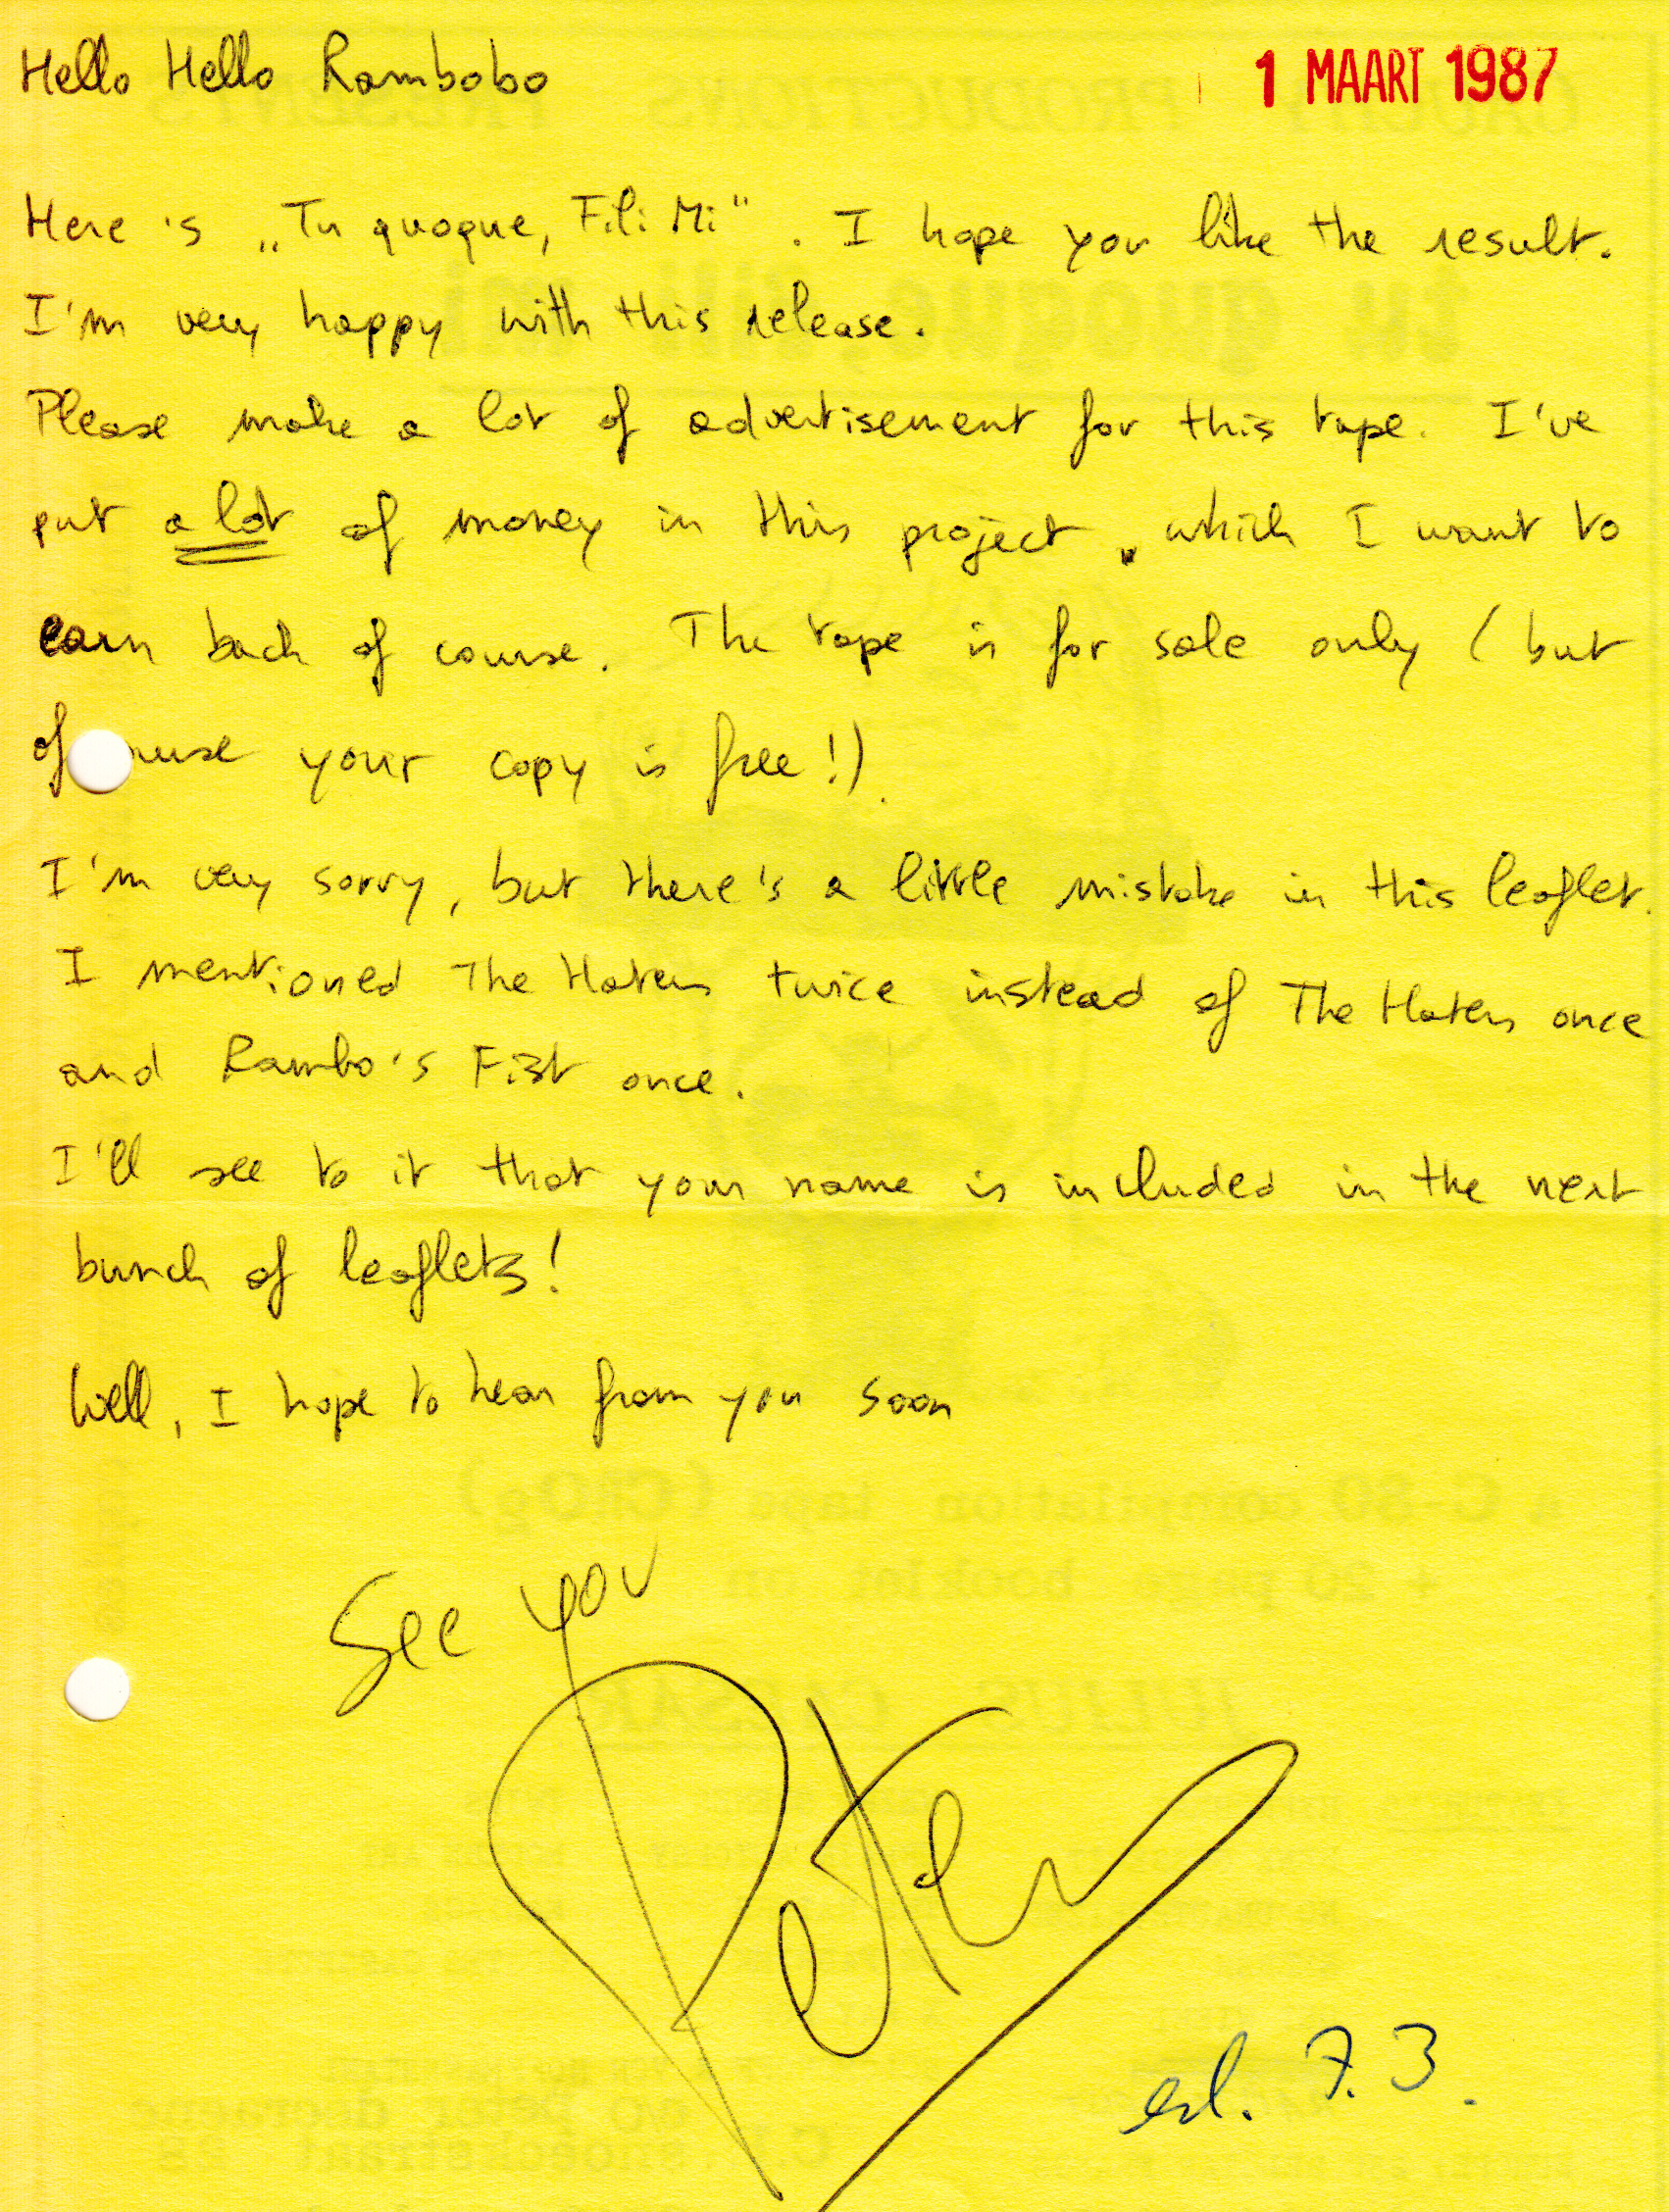 Hello Hello Rambobo
1 MAART 1987
Here's „Tu quoque, Fili Mi". I hope you like the result.
I'm very happy with this release.
Please make a lot of advertisement for this tape. I've
put a lot of money in this project, which I want to
earn back of course. The tape is for sale only (but
of course your copy is free!).
I'm very sorry, but there's a little mistake in this leaflet.
I mentioned The Haters twice instead of The Haters once
and Rambo's Fist once.
I'll see to it that your name is included in the next
bunch of leaflets!
Well, I hope to hear from you soon
See you
Peter
erl. 7.3.